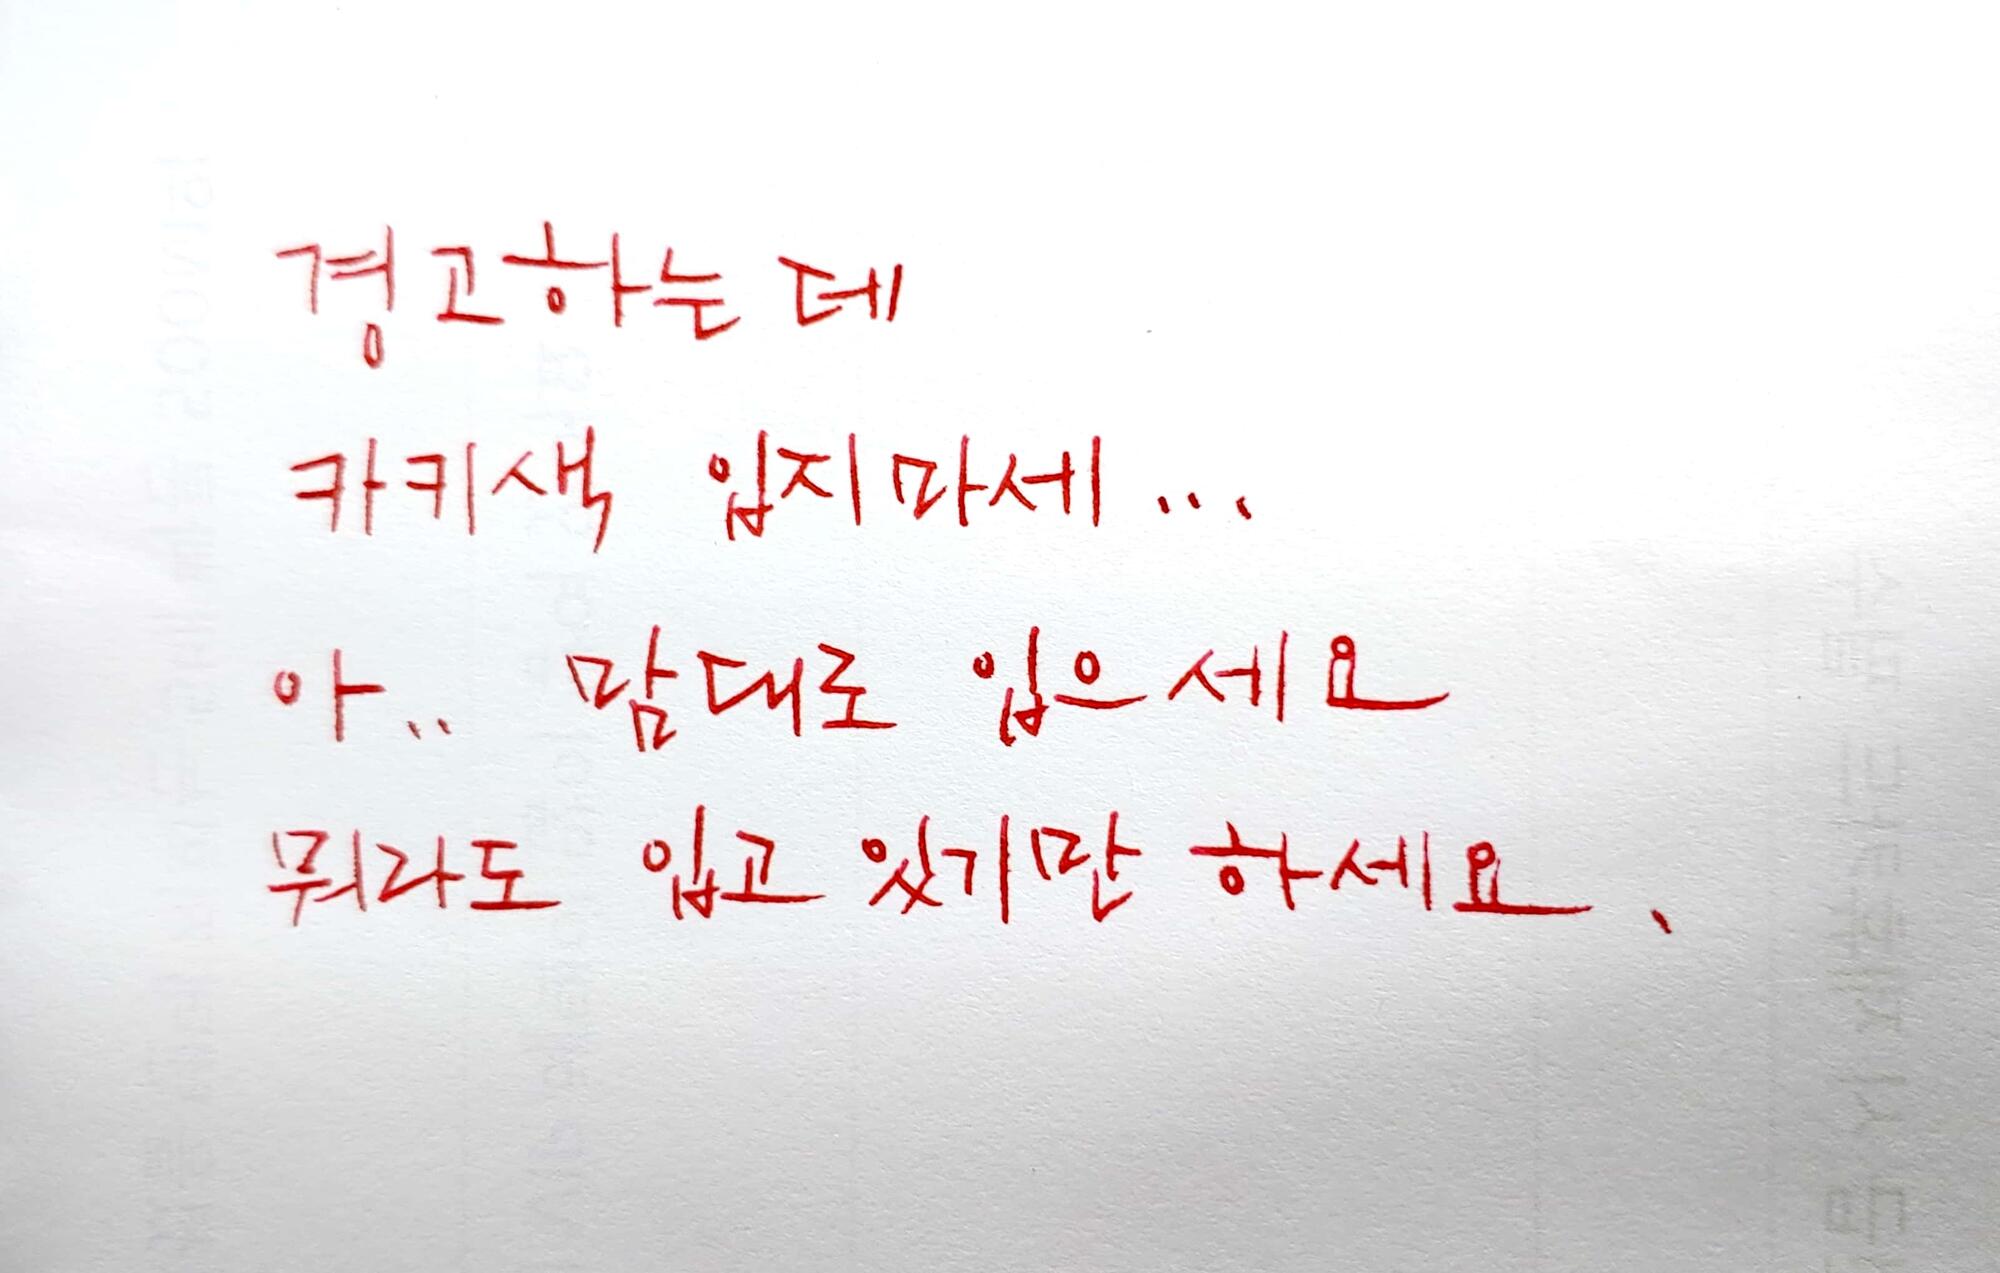 경고하는데
카키색 입지마세...
아.. 맘대로 입으세요
뭐라도 입고 있기만 하세요.